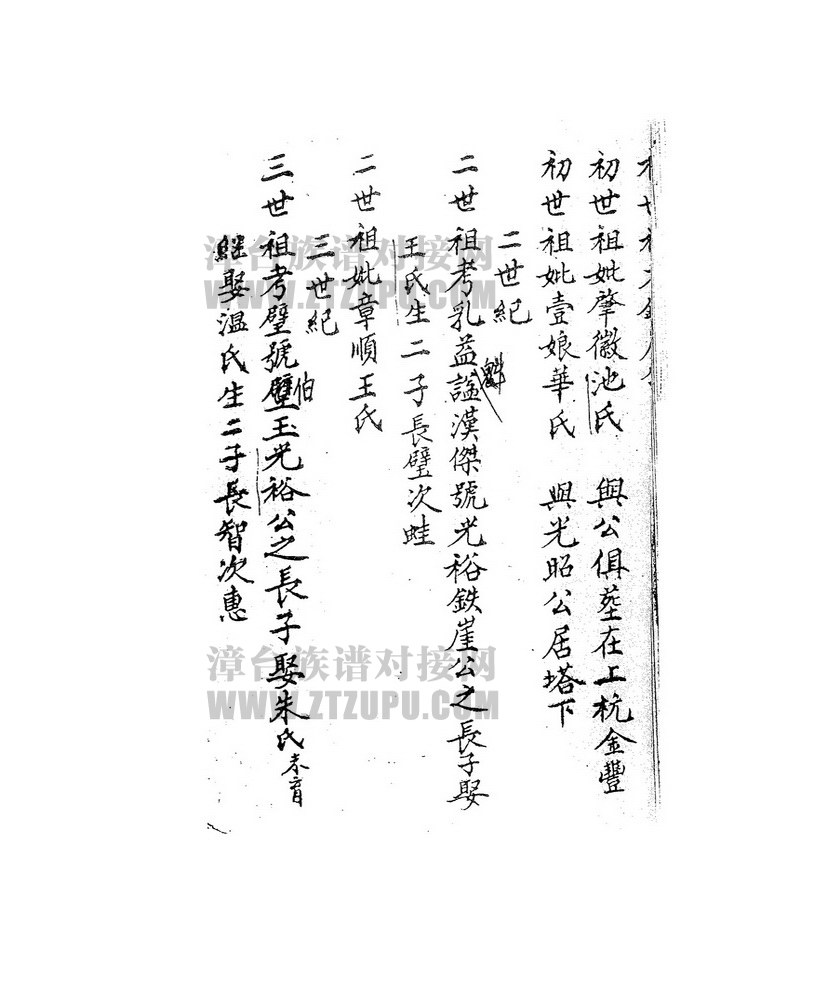 初世祖妣肇徽池氏 與公俱葬在上杭金豐
初世祖妣壹娘華氏 與光昭公居塔下
二世紀
二世祖考乳益謚漢傑號光裕鉄崖公之長子娶
魁
王氏生二子長璧次蛙
二世祖妣章順王氏
三世紀
三世祖考璧號璧玉光裕公之長子娶朱氏未育
伯
繼娶温氏生二子長智次惠
漳台族谱对接网
WWW.ZTZUPU.COM
漳台族谱对接网
WWW.ZTZUPU.COM